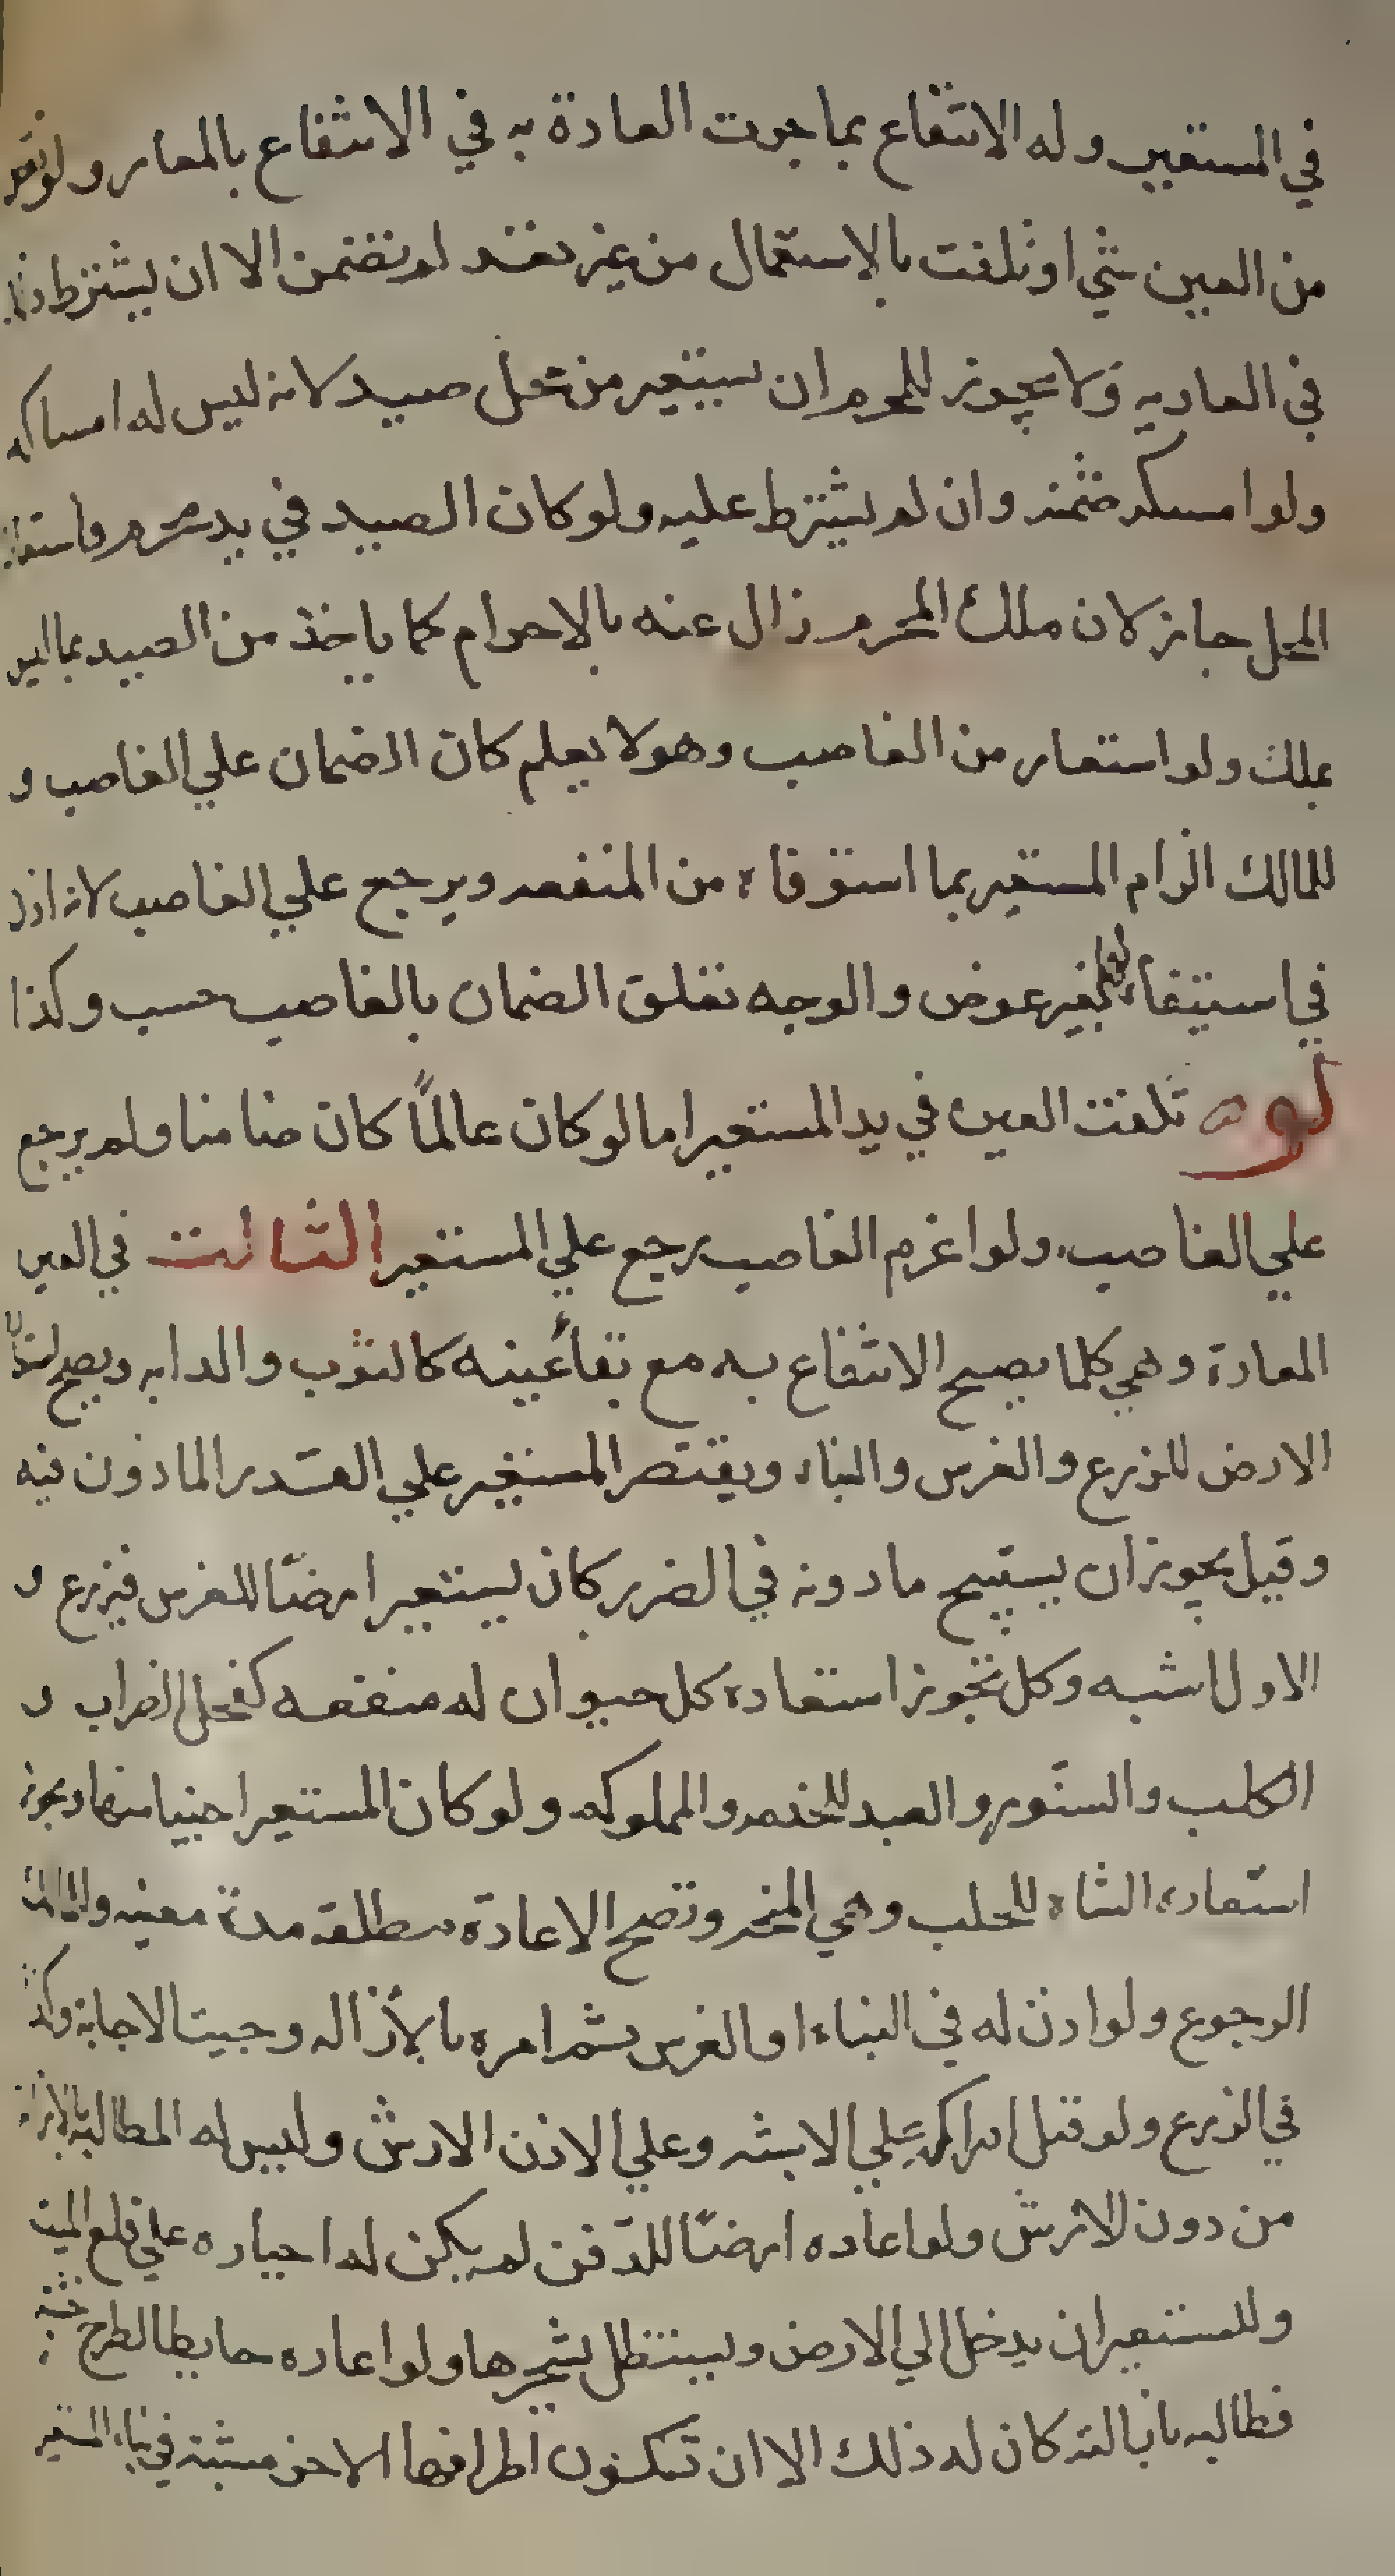 في المستعير وله الانتفاع بما جرت العادة به في الانتفاع بالمعار ولو نقص
من العين شي او تلفت بالاستعمال من غير تعد لم تضمن الا ان يشترط ذلك
في العاريه ولا يجوز للمحرم ان يستعير من محل صيد لانه ليس له امساكه
ولو امسكه ضمنه وان لم يشترط عليه ولو كان الصيد في يد محرم فاستعاره
المحل جاز لان ملك المحرم زال عنه بالاحرام كما ياخذ من الصيد ما ليس
بملك ولو استعار من الغاصب وهو لا يعلم كان الضمان علي الغاصب و
للمالك الزام المستعير بما استوفاه من المنفعه ويرجع علي الغاصب لانه اذن
في استيفائه بغير عوض والوجه تعلق الضمان بالغاصب حسب وكذا
لو تلفت العين في يد المستعير اما لو كان عالمًا كان ضامنا ولم يرجع
علي الغاصب ولو اغرم الغاصب رجع علي المستعير الثالث في العين
المعارة وهي كلما يصح الانتفاع به مع بقاء عينه كالثوب والدابه ويصح استعارة
الارض للزرع والغرس والبناء ويقتصر المستعير علي القدر الماذون فيه
وقيل يجوز ان يستبيح ما دونه في الضرر كان يستعير ارضًا للغرس فيزرع و
الاول اشبه وكل تجوز استعاده كل حيوان له منفعه كفحل الضراب و
الكلب والسنور والعبد للخدمه والمملوكه ولو كان المستعير اجنبيا منها ويجوز
استعاره الشاه للحلب وهي المنحه وتصح الاعادة مطلقه مدة معينه وللمالك
الرجوع ولو اذن له في البناء او الغرس ثم امره بالازاله وجبت الاجابة وكذا
في الزرع ولو قبل ادراكه علي الاشبه وعلي الاذن الارش وليس له المطالبة بالازاله
من دون الارش ولو اعاده ارضًا للدفن لم يكن له اجباره علي قلع الميت
وللمستعير ان يدخل الي الارض ويستظل بشجرها ولو اعاره حايطا لطرح خشبه
فطالبه بازالته كان له ذلك الا ان تكون اطرافها الاخر مثبته في بناء المستعير